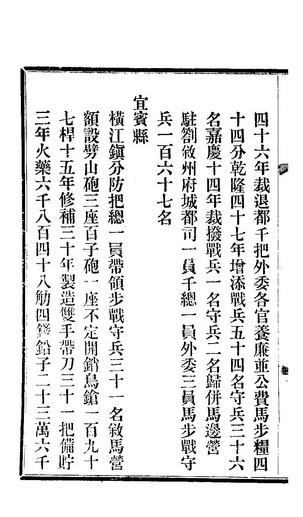 四十六年裁退都千把外委各官養廉並公費馬步糧四
十四分乾隆四十七年增添戰兵五十四名守兵三十六
名嘉慶十四年裁撥戰兵一名守兵二名歸併馬邊營
駐劄敘州府城都司一員千總一員外委三員馬步戰守
兵一百六十七名
宜賓縣
橫江鎭分防把總一員帶領步戰守兵三十一名敘馬營
額設劈山砲三座百子砲一座不定開銷鳥鎗一百九十
七桿十五年修補三十年製造雙手帶刀三十一把備貯
三年火藥六千八百四十八觔四錢鉛子二十三萬六千